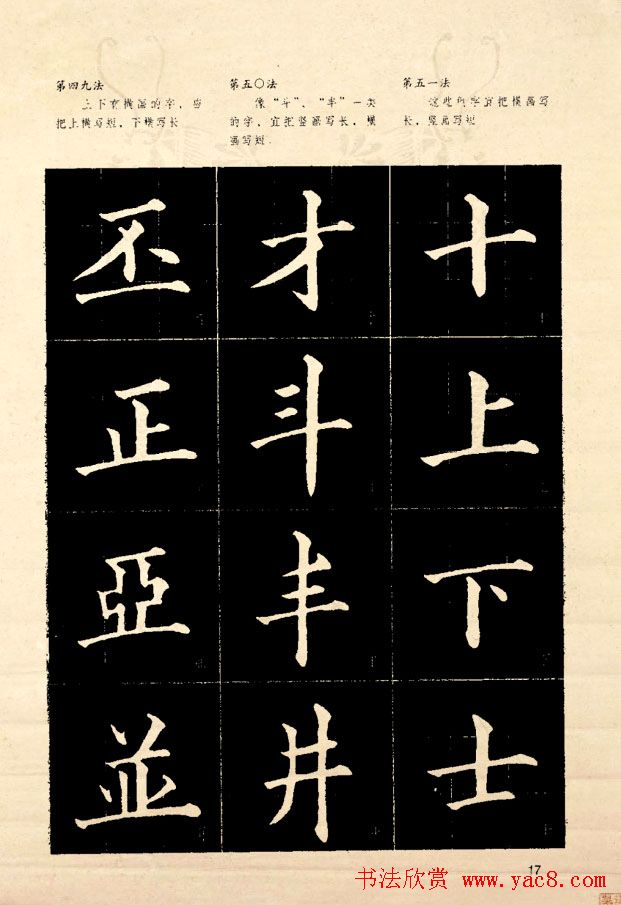 第四九法
上下有横画的字，当
把上横写短，下横写长
第五〇法
像“斗”、“丰”一类
的字，宜把竖画写长，横
画写短．
第五一法
这些的字宜把横画写
长，竖画写短
丕 才 十
正 斗 上
亞 丰 下
並 井 士
17
书法欣赏 www.yac8.com